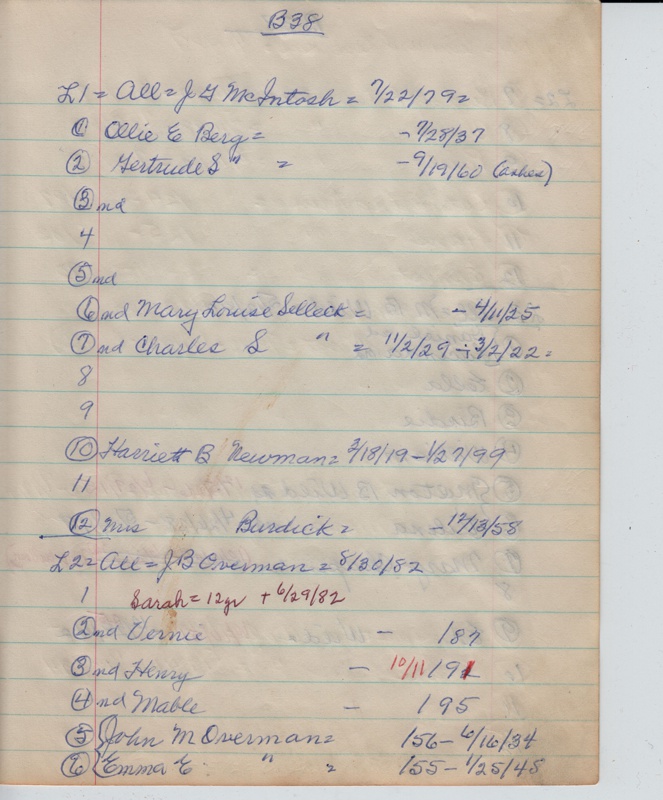 B38
L1 = All = J G McIntosh = 7/22/79 =
1 Ollie E Berg = - 7/28/37
2 Gertrude S " = - 9/19/60 (ashes)
3 nd
4
5 nd
6 nd Mary Louise Selleck = - 4/11/25
7 nd Charles S " = 11/2/29 ÷ 3/2/22 =
8
9
10 Harriett B Newman = 3/18/19 - 1/27/99
11
12 Mrs Burdick = - 12/13/58
L2 = All = J B Overman = 8/30/82
1 Sarah = 12gr + 6/29/82
2 nd Vernie - 187
3 nd Henry - 10/11/191
4 nd Mable - 195
5 John M Overman = 156 - 6/16/34
6 Emma E " = 155 - 1/25/48